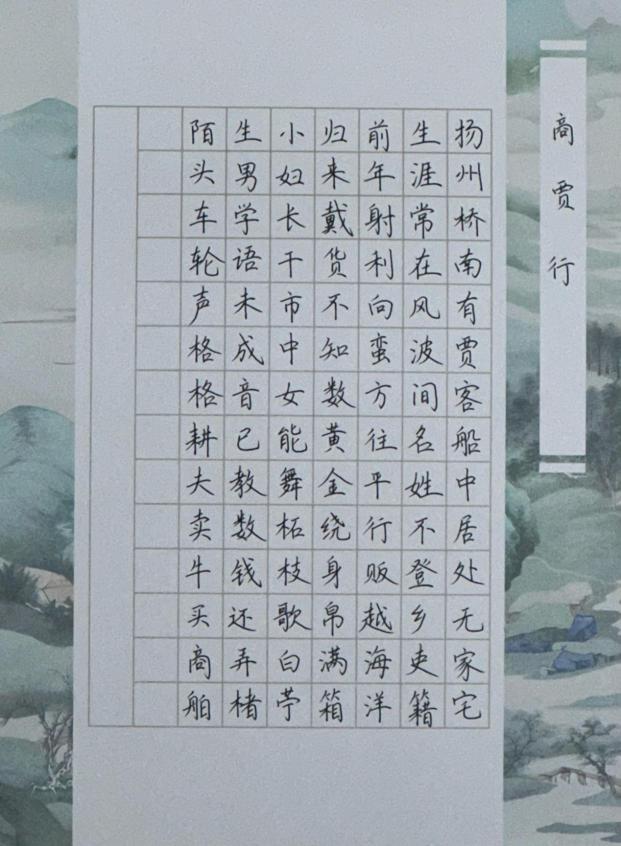 商贾行
扬州桥南有贾客船中居处无家宅
生涯常在风波间名姓不登乡吏籍
前年射利向蛮方往平行贩越海洋
归来戴货不知数黄金绕身帛满箱
小妇长干市中女能舞柘枝歌白苧
生男学语未成音已教数钱还弄楮
陌头车轮声格格耕夫卖牛买商舶